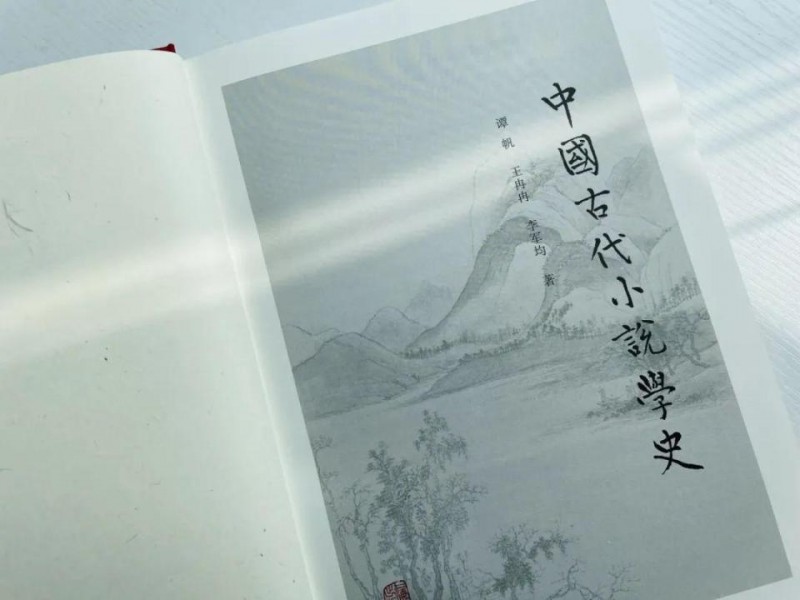 中國古代小說學史
谭帆 王冉冉 李军均 著